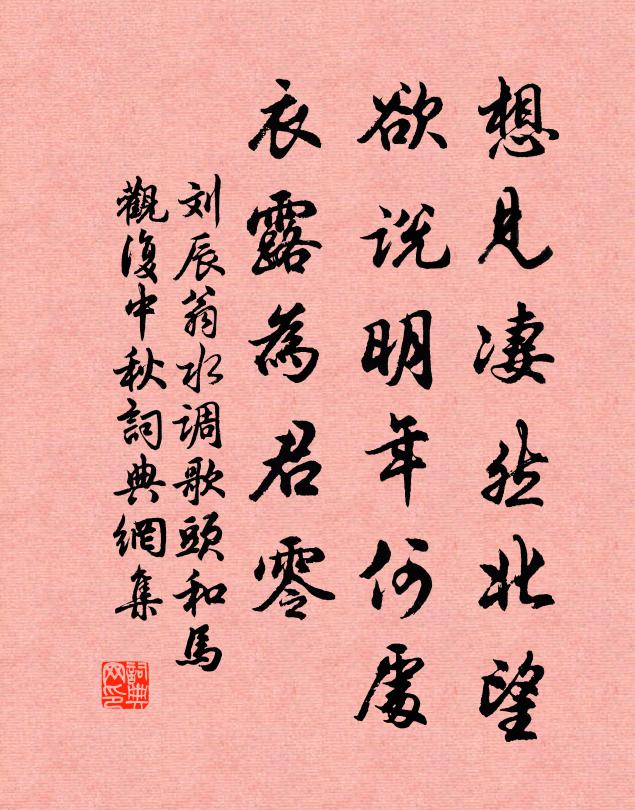 想見淒然北望
欲説明年何處
衣露為君零
刘辰翁水调歌頭和馬
觀復中秋詞典網集
詞典网印